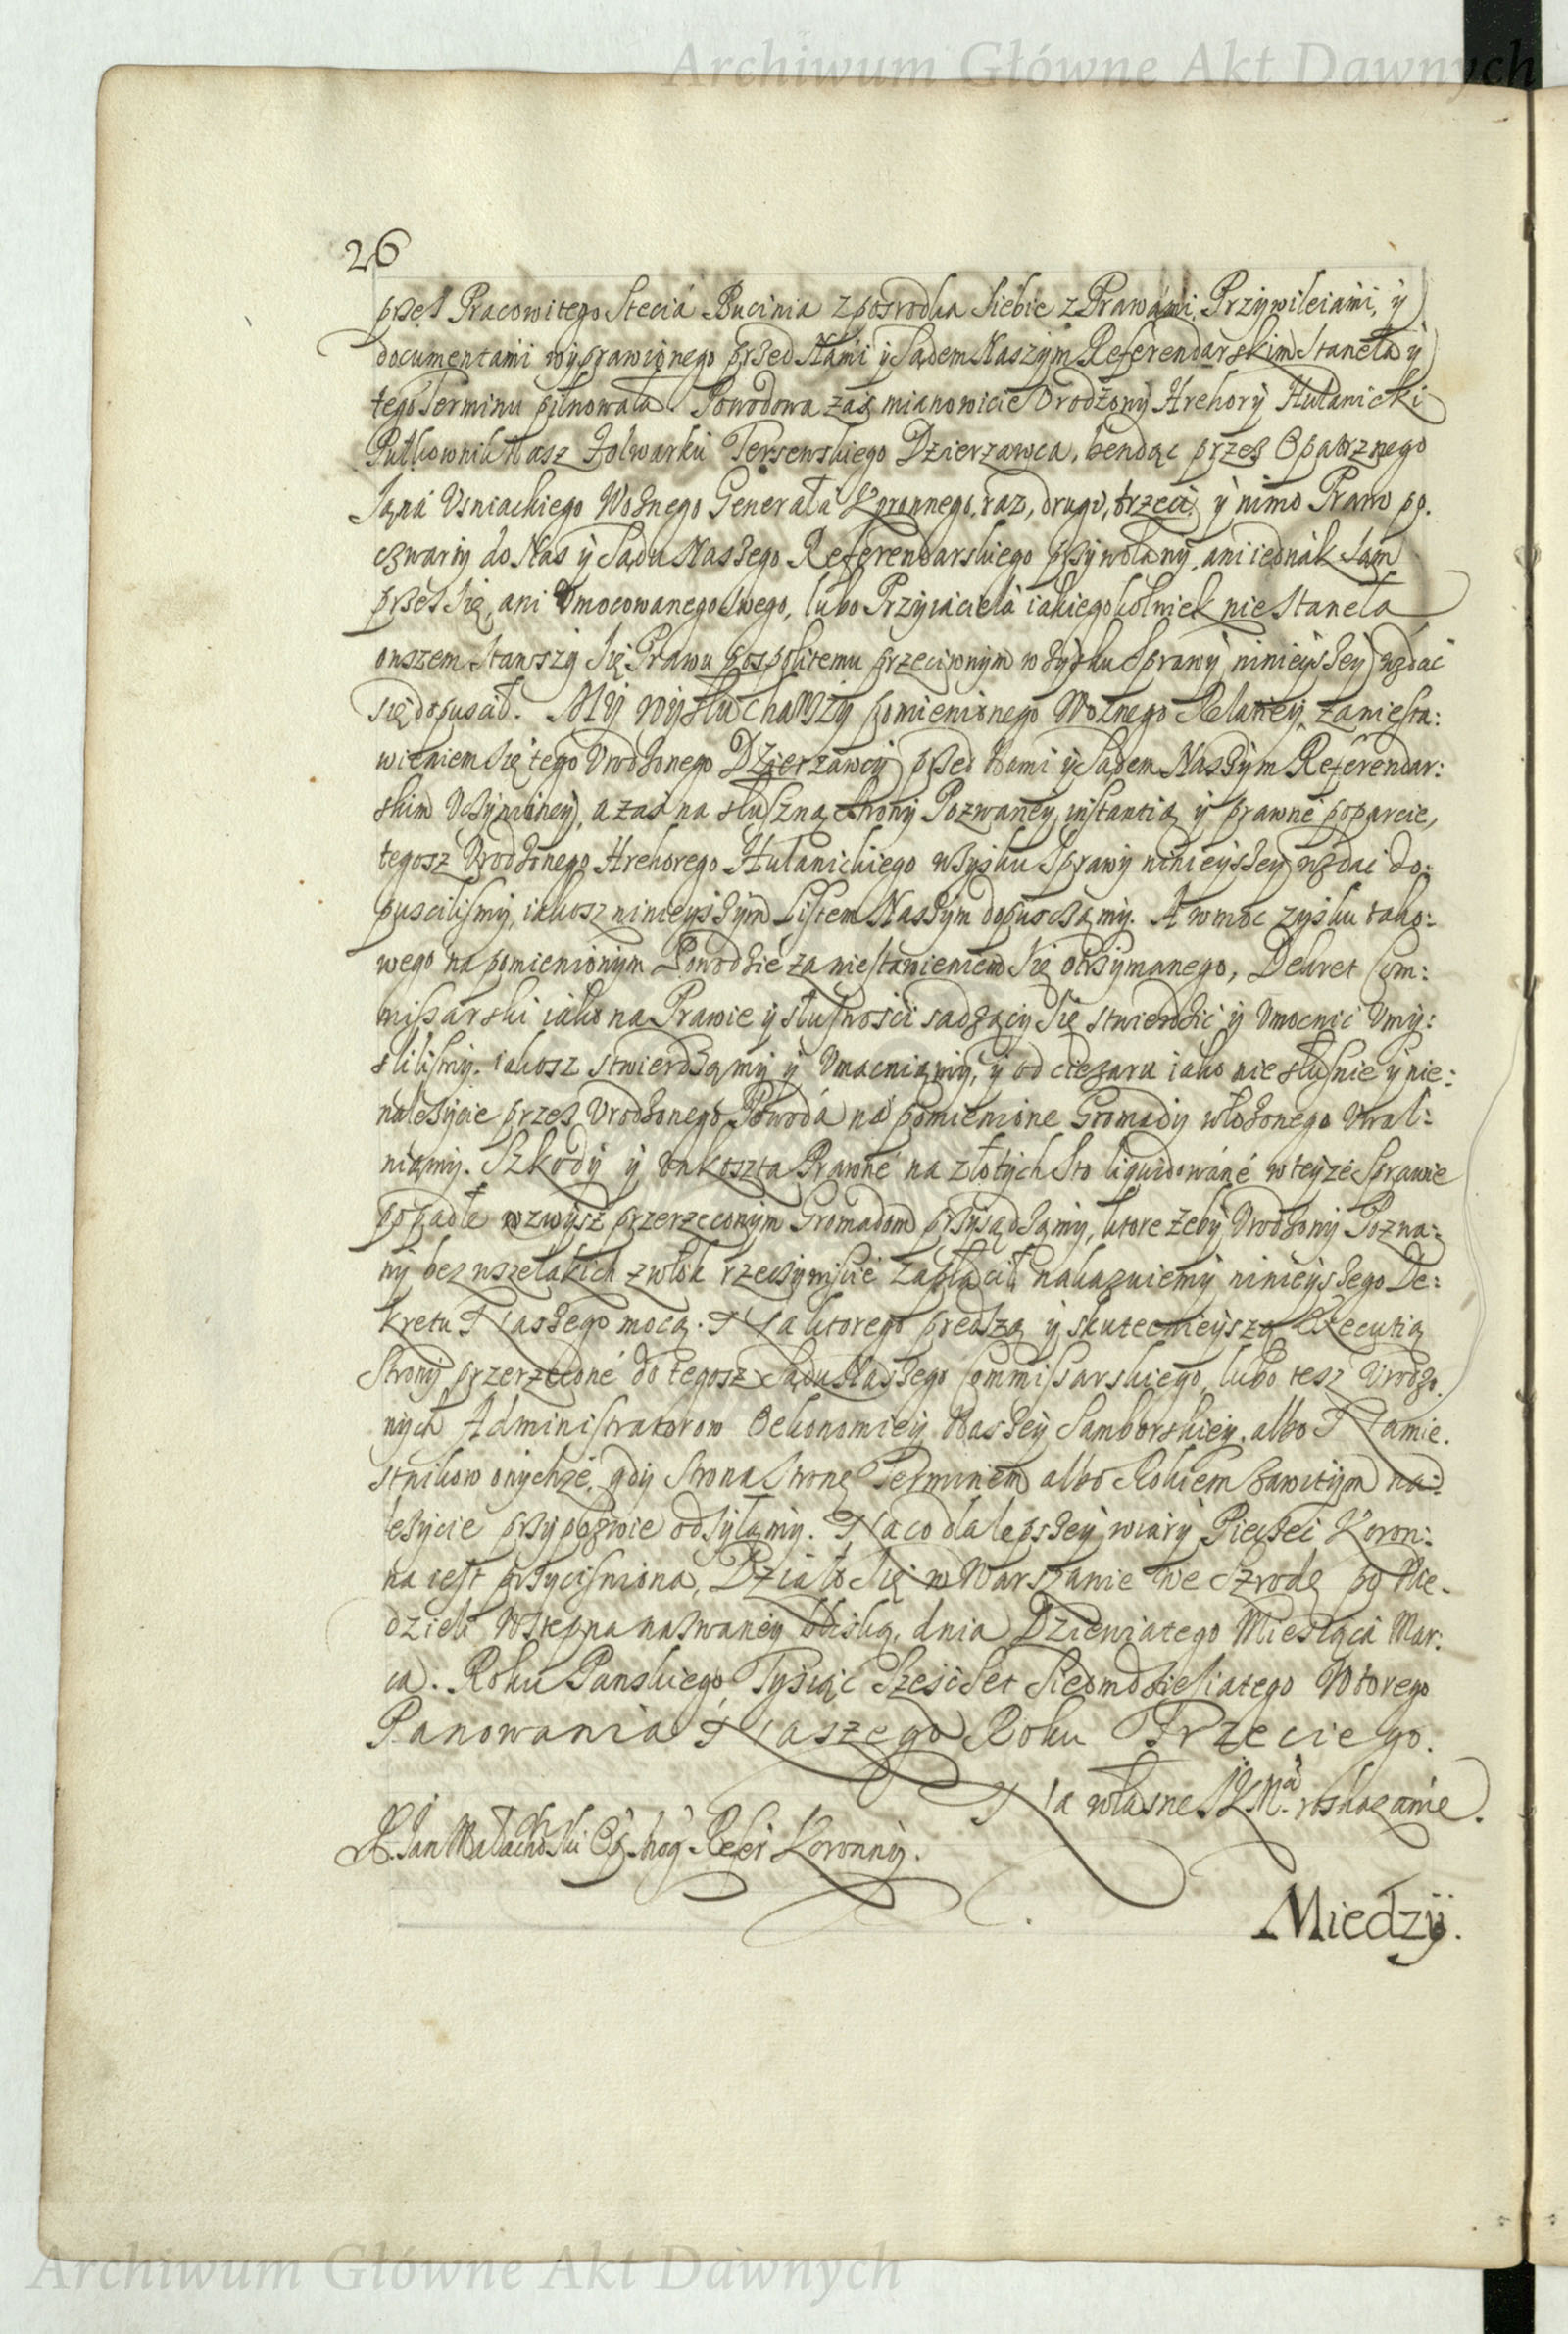 Archiwum Główne Akt Dawnych
26
przez Pracowitego Stecia Bucinia z posrodka siebie z Prawami, Przywileiami, y
documentami wyprawionego przed Nami y Sądem Naszym Referendarskim Staneła y
tego Terminu pilnowała. Powodowa zaś mianowicie Vrodzony Hrehory Hulanicki
Pułkownik Nasz Folwarku Tersewskiego Dzierzawca, bendąc przez Opatrznego
Jana Vsniackiego Woznego Generała Koronnego, raz, drugi, trzeci, y nimo Prawo po.
czwarty do Nas y Sądu Naszego Referendarskiego przywołany, ani iednak sam
przez się, ani Vmocowanego swego, lubo Przyiaciela iakiegokolwiek nie Staneła
onszem Stawszy się Prawu pospolitemu przeciwnym w zysku Sprawy ninieyszey wzdać
się dopuscił. My wysłuchawszy pomienionego Woznego Relatiey, za niesta:
wieniem się tego Vrodzonego Dzierzawcy przed Nami y Sądem Naszym Referendar:
skim Vczynioney, a zaś na słuszną strony Pozwaney instantią y prawne poparcie,
tegosz Vrodzonego Hrehorego Hulanickiego w zysku Sprawy ninieyszey wzdać do:
puscilismy, iakosz ninieyszym Listem Naszym dopusczamy. A w moc zysku tako:
wego na pomienionym Powodzie za niestawieniem się otrzymanego, Dekret Com:
missarski iako na Prawie y słusznosci sadzący się stwierdzić y Vmocnić Vmy:
slilismy. iakosz stwierdzamy y Vmacniamy, y od ciezaru iako niesłusznie y nie:
nalezycie przez Vrodzonego Powoda na pomienione Gromady włozonego Vwal:
niamy. Szkody y Vnkoszta Prawne na złotych Sto liquidowane w teyze Sprawie
popadłe wzwysz przerzeconym Gromadom przysądzamy, ktore zeby Vrodzony Pozwa:
ny bez wszelakich zwłok rzeczywiscie zapłacił nakazuiemy ninieyszego De:
kretu Naszego mocą. Na ktorego prędszą y skutecznieyszą Execucią
Strony przerzeczone do tegosz Sądu Naszego Commissarskiego, lubo tesz Vrodzo.
nych Administratorow Oekonomiey Naszey Samborskiey, albo Namie.
stnikow onychze, gdy Strona Stronę Terminem albo Rokiem zawitym na:
lezycie przypozwie odsyłamy. Na co dla lepszey wiary Pieczęć Koron:
na iest przycisniona, Działo się w Warszawie we Szrodę po Nie.
dzieli Wstępna nazwaney bliską, dnia Dziewiątego Miesiąca Mar:
ca. Roku Panskiego Tysiąc Szescset Siedmdziesiatego Wtorego
Panowania Naszego Roku Trzeciego.
Na własne JKMci roskazanie.
X. Jan Małachowski Refer Koronny.
Miedzy.
Archiwum Główne Akt Dawnych